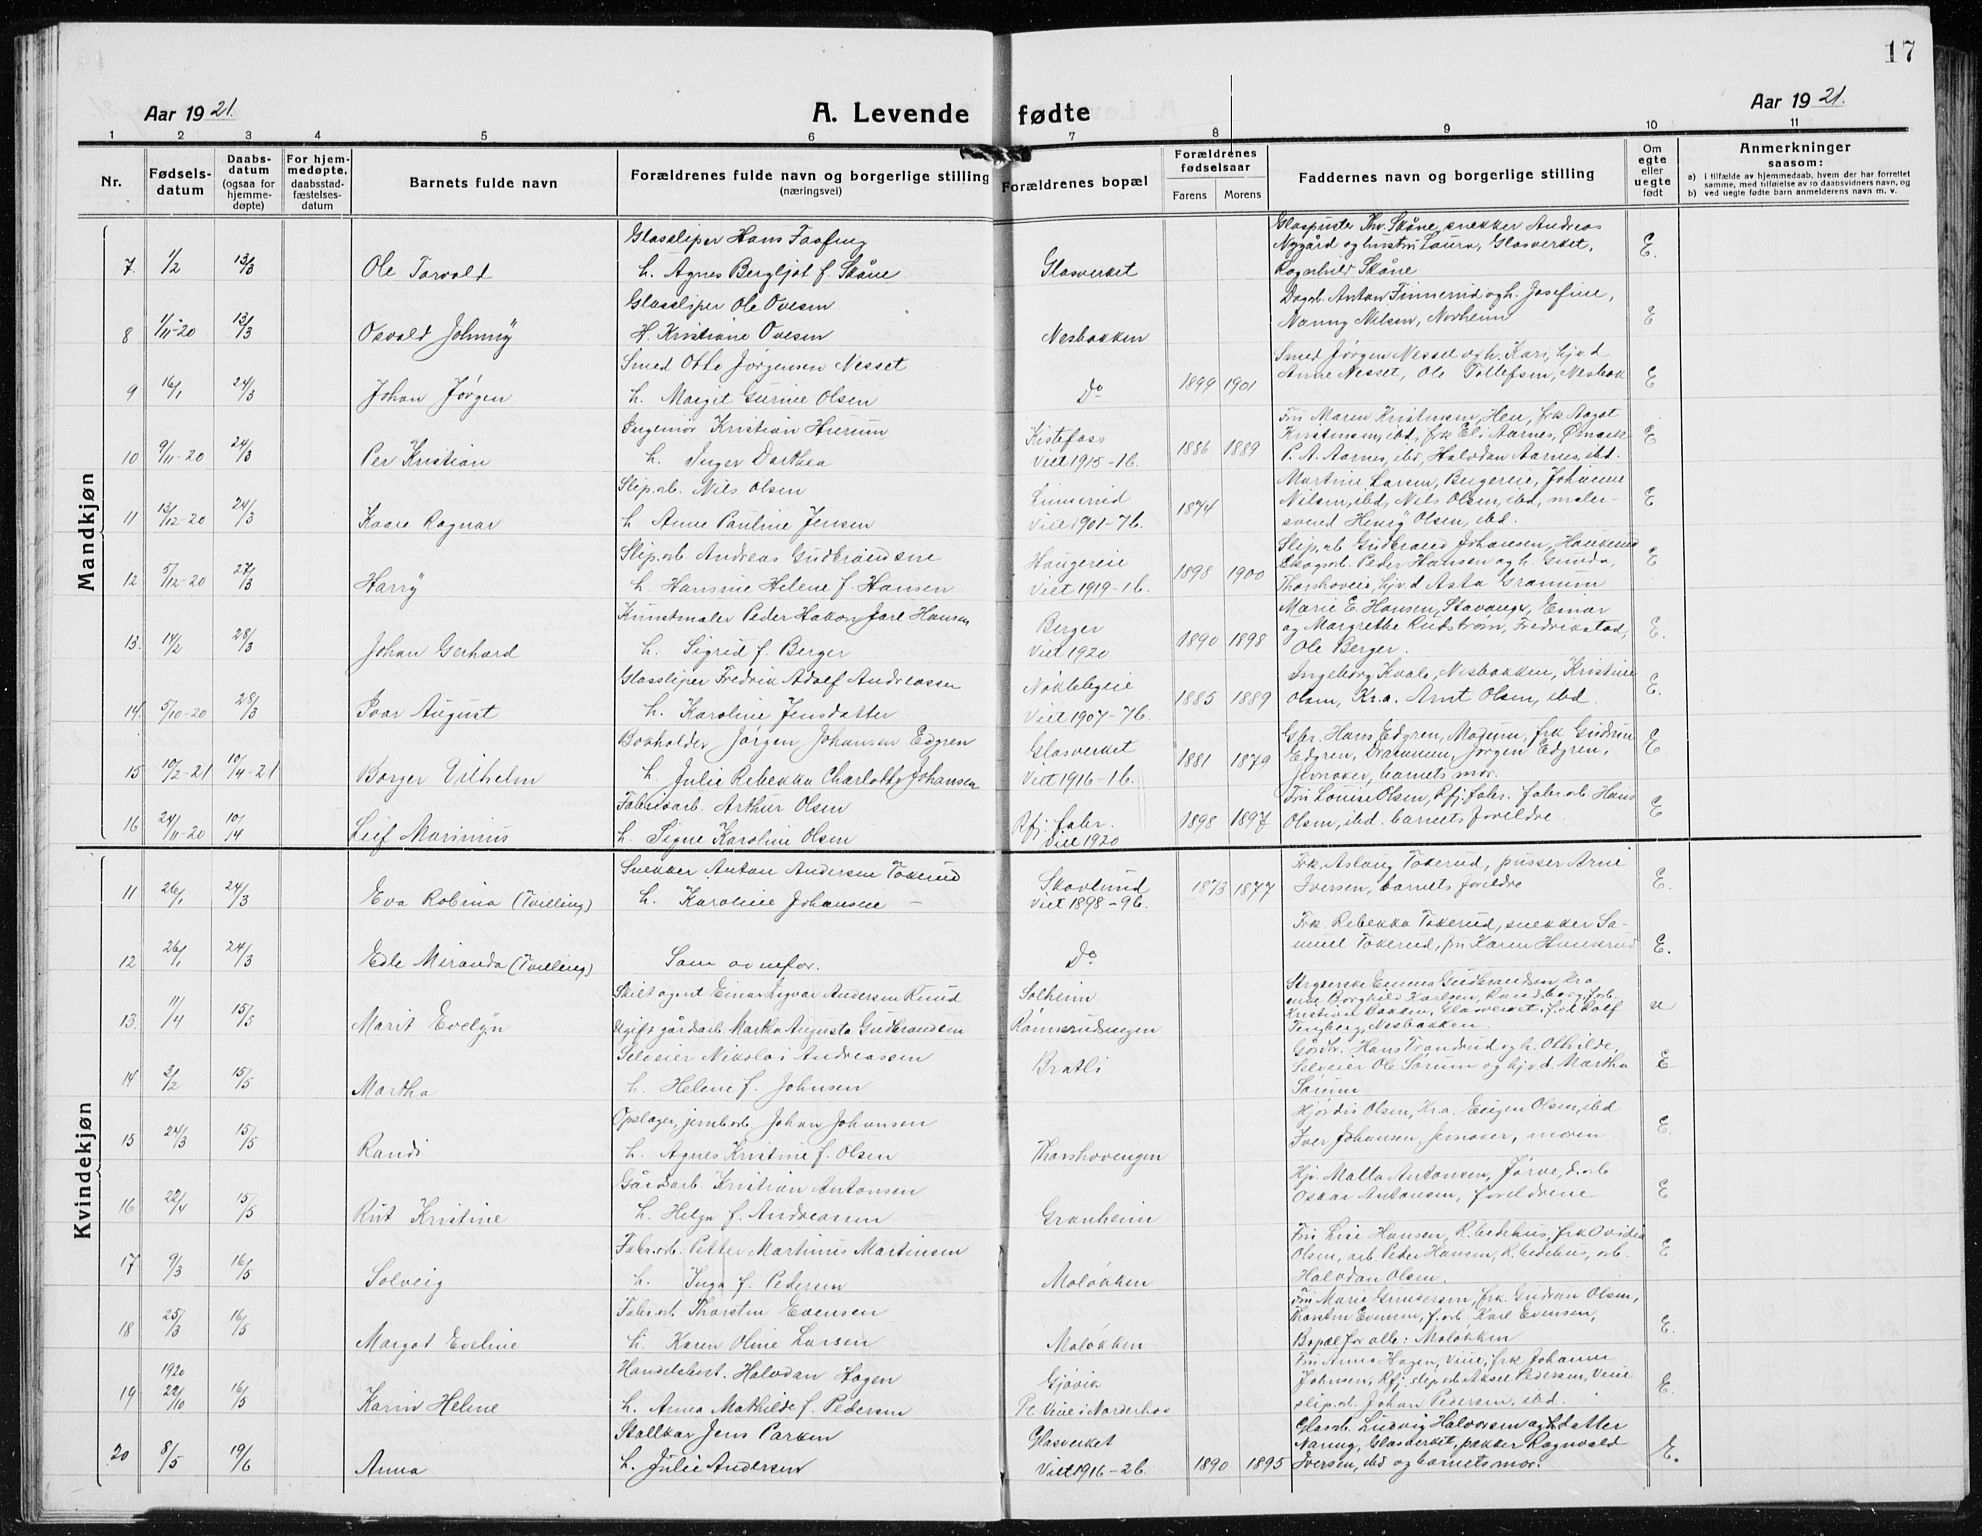 17
Aar 1921.
A. Levende fødte
Aar 1921.
1 2 3 4 5 6 7 8 9 10 11
Nr.
Fødsels-
datum
Daabs-
datum
(ogsaa for
hjemme-
døpte)
For hjem-
medøpte,
daabsstad-
fæstelses-
datum
Barnets fulde navn
Forældrenes fulde navn og borgerlige stilling
(næringsvei)
Forældrenes bopæl
Forældrenes
fødselsaar
Farens Morens
Faddernes navn og borgerlige stilling
Om
egte
eller
uegte
født
Anmerkninger
saasom:
a) i tilfælde av hjemmedaab, hvem der har forrettet
samme, med tilføielse av to daabsvidners navn, og
b) ved uegte fødte barn anmelderens navn m. v.
Mandkjøn
7. 1/2 13/3 Ole Torvald
Glassliper Hans Faafeng
h. Agnes Bergljot f. Skåne
Glasverket
Glaspuster Thv. Skåne, snekker Andreas
Nygård og hustru Laura, Glasverket,
Ragnhild Skåne
E.
8 1/11-20 13/3 Osvald Johnny
Glassliper Ole Ovesen
H. Kristiane Ovesen
Nesbakken
Dagarb. Anton Finnerud og h. Josefine,
Nanny Nilsen, Norheim
E
9 16/1 24/3 Johan Jørgen
Smed Otto Jørgensen Nesset
h. Marget Gurine Olsen
Do
1899 1901
Smed Jørgen Nesset og h. Kari, hj.v.d
Anne Nesset, Ole Tollefsen, Nesbak
E
10 9/11-20 24/3 Per Kristian
Ingeniør Kristian Hurum
h. Inger Dorthea
Kistefoss
Viet 1915-1b.
1886 1889
Fru Maren Kristensen, Hen, frk Aagot
Kristensen, ibd, frk El. Aarnes, Ømark
P. A. Aarnes, ibd, Halvdan Aarnes, ibd.
E
11 13/12-20 24/3 Kaare Ragnar
Slip.arb. Nils Olsen
h Anne Pauline Jensen
Linnerud
Viet 1901-7b.
1874
Martine Larsen, Bergereie, Johanne
Nilsen, ibd, Nils Olsen, ibd, maler-
svend Henry Olsen, ibd.
E
12 5/12-20 27/3 Harry
Slip.arb Andreas Gudbrandsen
h. Hansine Helene f. Hansen
Haugereie
Viet 1919-1b.
1898 1900
Slip.arb. Gudbrand Johansen, Haukerud
Skogsarb. Peder Hansen og h. Gunda,
Thorshoveie, hjv.d Asta Granum
E
13. 14/2 28/3 Johan Gerhard
Kunstmaler Peder Hakon Jarl Hansen
h. Sigrid f. Berger
Berger
Viet 1920
1890 1898
Marie E. Hansen, Stavanger, Einar
og Margrethe Rudstrøm, Fredrikstad,
Ole Berger.
E.
14. 5/10-20 28/3 Ivar August
Glassliper Fredrik Adolf Andreassen
h. Karoline Jensdatter
Nøklebyeie
Viet 1907-7b.
1885 1889
Ingeborg Kvale, Nesbakken, Kristine
Olsen, Kr.a. Arnt Olsen, ibd.
E.
15 10/2-21 10/4-21 Borger Vilhelm
Bokholder Jørgen Johansen Edgren
h. Julie Rebekka Charlotte Johansen
Glasverket
Viet 1916-1b.
1881 1879
Gbr. Hans Edgren, Modum, frk Gudrun
Edgren, Drammen, Jørgen Edgren,
Jevnaker, barnets mor.
E.
16 24/11-20 10/4 Leif Marinius
Fabrikarb. Arthur Olsen
h. Signe Karoline Olsen
Rfj. fabr.
Viet 1920
1898 1897
Fru Louise Olsen, Rfj. fabr. fabr.arb Hans
Olsen, ibd. barnets foreldre.
E
Kvindekjøn
11 26/1 24/3 Eva Robina (Tvilling)
Snekker Anton Andersen Tokerud
h. Karoline Johansen -
Skovlund
Viet 1898-9b.
1873 1877
Frk. Aslaug Tokerud, pusser Arne
Iversen, barnets foreldre
E.
12 26/1 24/3 Edle Miranda (Tvilling)
Som ovenfor.
Do
Frk. Rebekka Tokerud, snekker Sa-
muel Tokerud, fru Karen Haukerud
E.
13. 11/4 15/5 Marit Evelyn
Skiltagent Einar Ingvar Andersen Ruud
Ugift gårdarb. Martha Augusta Gudbrandsen
Solheim
Rønnerudengen
Strykerske Emma Gudbrandsen Kra
Borghild Karlsen, Randsborg, f.arb.
Kristian Bakken, Glasverket, f.arb Rolf
Tingberg, Nesbakken.
u
14 3/2 15/5 Martha
Selveier Nikolai Andreassen
h. Helene f. Johnsen
Bratli
Gårdbr. Hans Trandrud og h. Othilde,
Selveier Ole Sørum og hjv.d Martha
Sørum
E
15 24/3 15/5 Randi
Opslager, jernb.arb. Johan Johansen
h. Agnes Kristine f. Olsen
Thorshovengen
Hjørdis Olsen, Kra. Eugen Olsen, ibd
Iver Johansen, Jevnaker, moren
E.
16 22/4 15/5 Rut Kristine
Gårdarb. Kristian Antonsen
h. Helga f. Andreassen
Granheim
Hjv. Malla Antonsen, Jørve, d.arb
Oskar Antonsen, foreldrene
E
17 9/3 16/5 Solveig
Fabr.arb. Petter Martinus Martinsen
h. Inga f. Pedersen
Moløkken
Fru Lise Hansen, R. bedehus, frk Ovidia
Olsen, arb. Peder Hansen, R. bedehus, arb.
Halvdan Olsen.
E
18 25/3 16/5 Margot Eveline
Fabr.arb Thorsten Evensen
h. Karen Oline Larsen
Moløkken
Fru Marie Gundersen, frk. Gudrun Olsen,
Thorsten Evensen, f.arb Karl Evensen,
Bopæl for alle: Moløkken
E.
1920
19 22/10 16/5 Karin Helene
Handelsbest. Halvdan Hagen
h. Anna Mathilde f. Pedersen
Gjøvik
Pt. Viue i Norderhov
Fru Anna Hagen, Viue, frk Johanne
Johnsen, Rfj. slip.arb Aksel Pedersen, Viue
slip.arb. Johan Pedersen, ibd.
E.
20 8/5 19/6 Anna
Stallkar Jens Parken
h. Julie Andersen
Glasverket
Viet 1916-2b.
1890 1895
Glasarb. Ludvig Halvorsen og datter
Nanny, Glasverket, pakker Ragnvald
Iversen, ibd og barnets mor.
E.